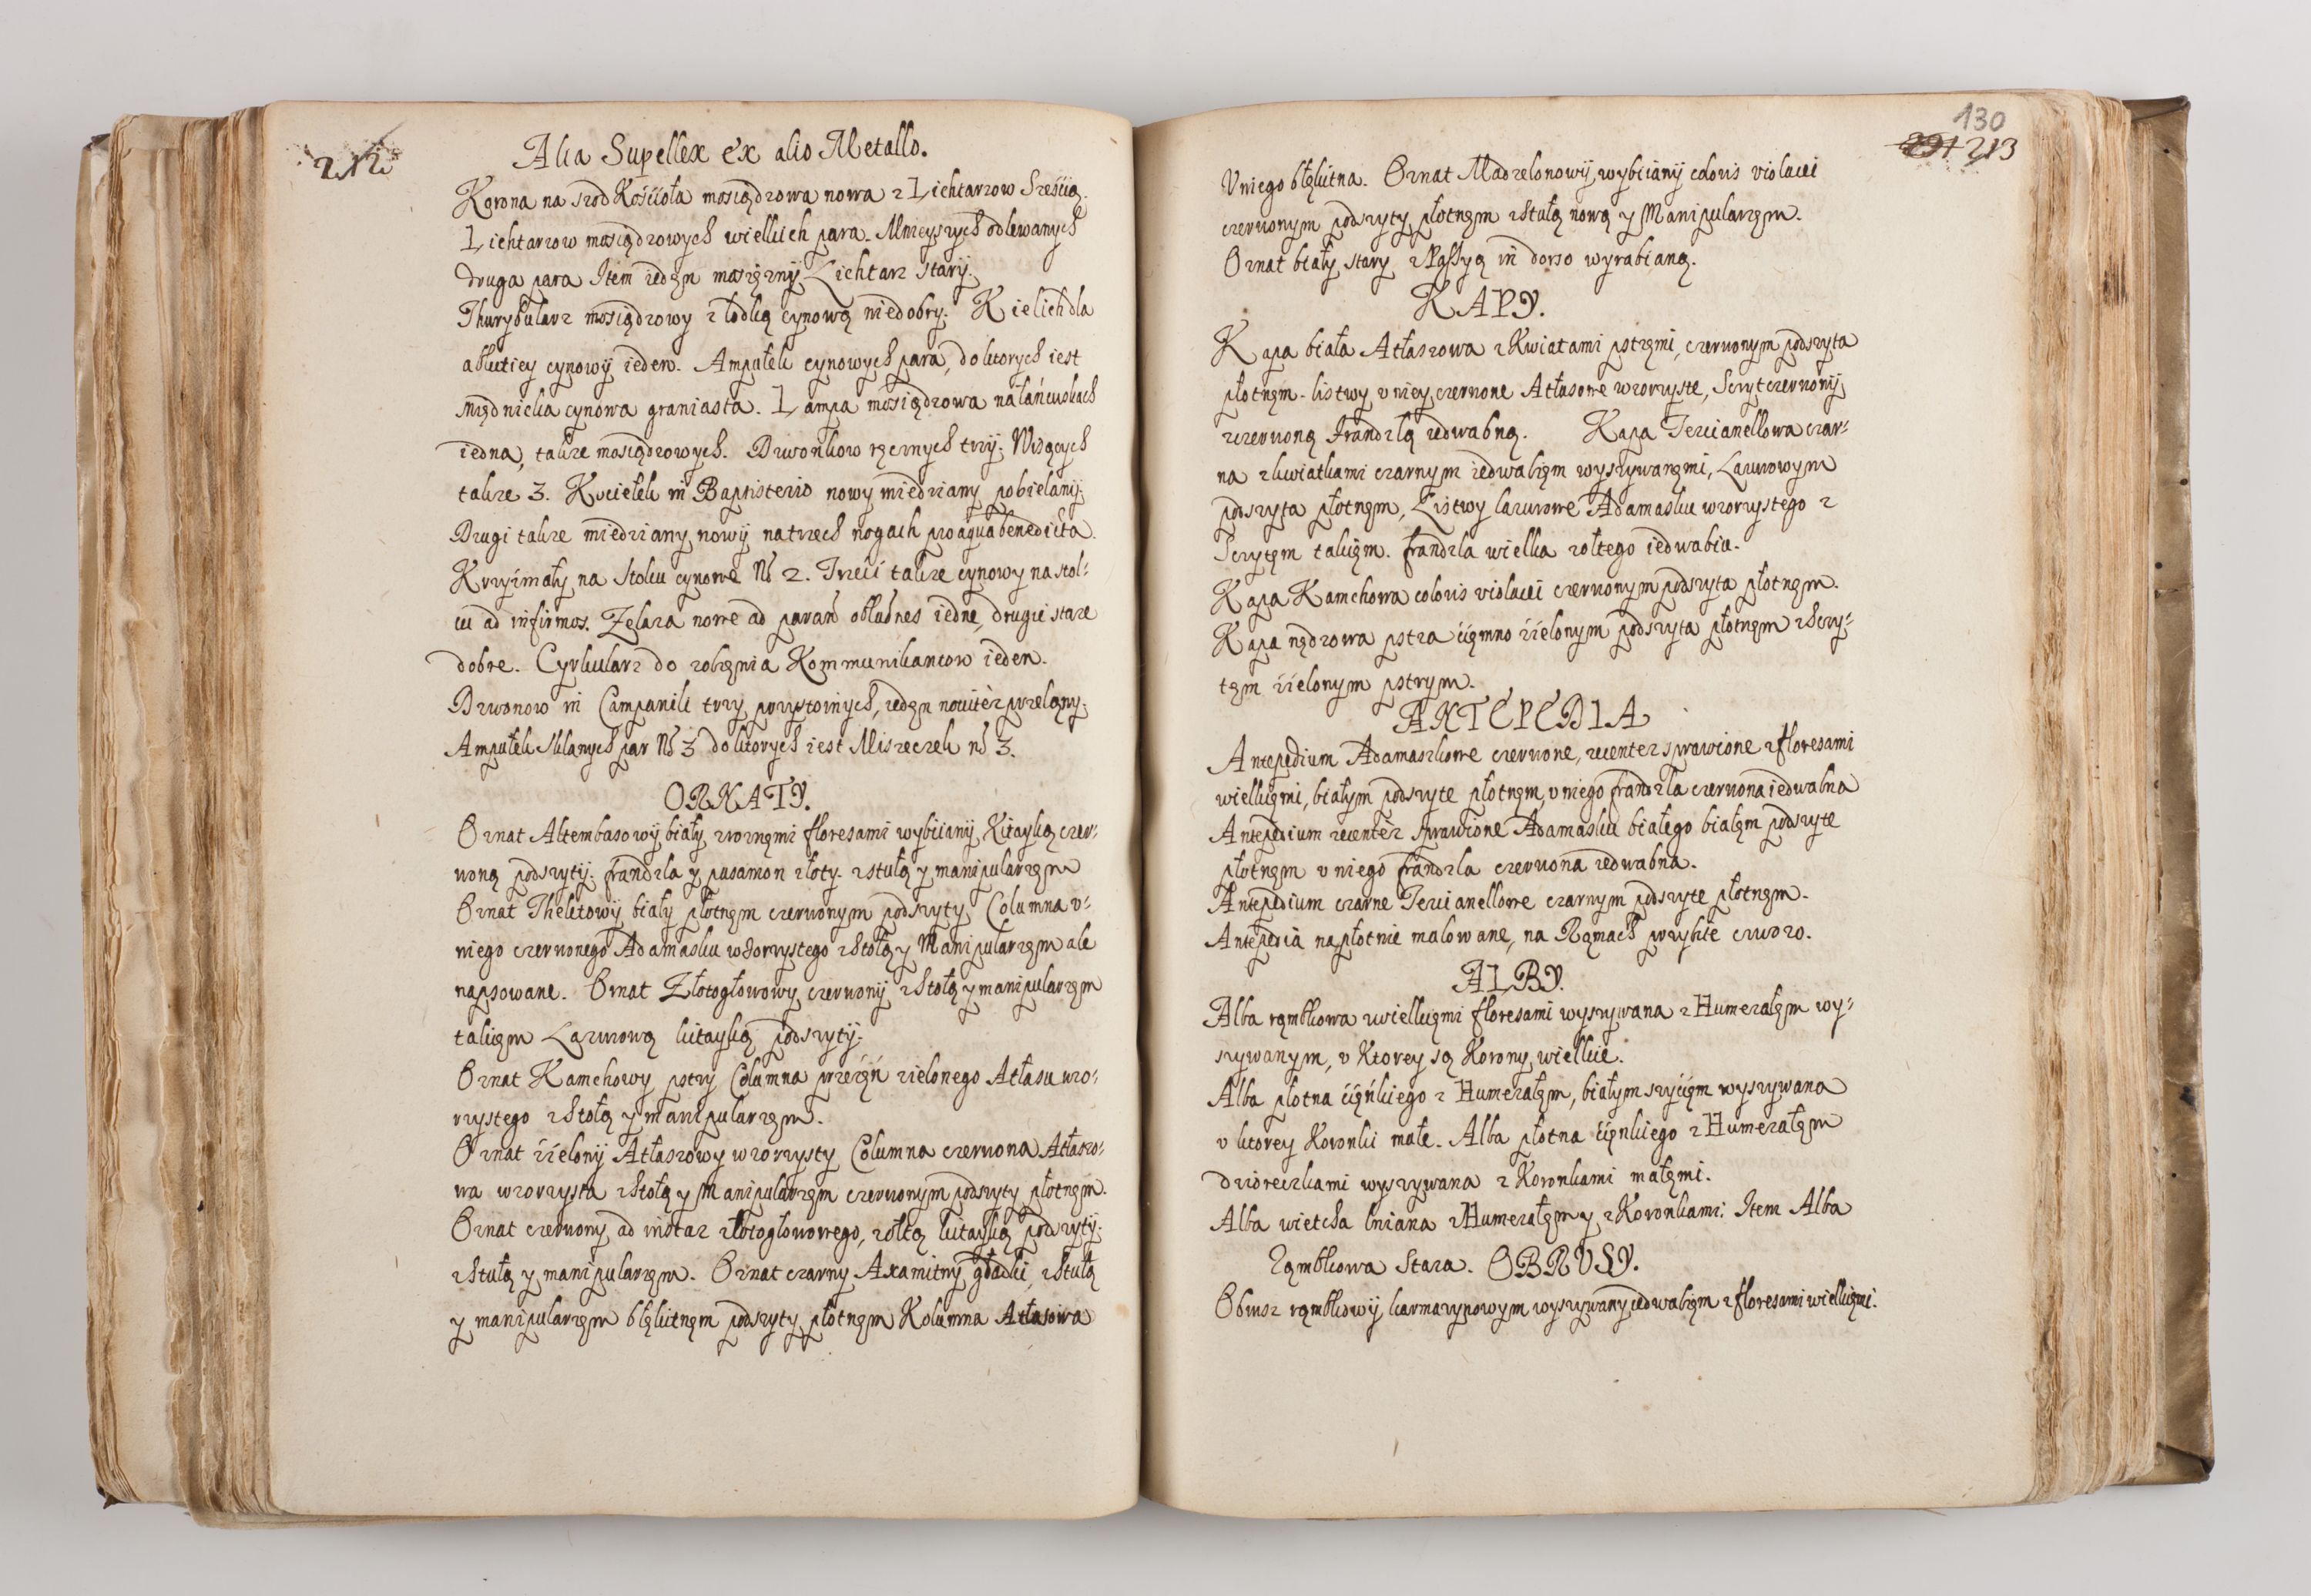 212
Alia Supellex ex alio Metallo.
Korona na srod Kośćioła mosiądzowa nowa z Lichtarzow Sześćią.
Lichtarzow mosiądzowych wielkich para. Mnieyszych odlewanych
druga para Item iedęn mosiężny Lichtarz starij.
Thurybularz mosiądzowy z łodką cynową niedobry. Kielich dla
abluciey cynowij ieden. Ampułek cynowych para, do ktorych iest
miednicka cynowa graniasta. Lampa mosiądzowa na łańcuskach
iedna, takze mosiądzowych. Dzwonkow ręcznych trzij. Wisących
takze 3. Kociełek in Baptisterio nowy miedziany pobielanij.
Drugi takze miedziany nowij na trzech nogach pro aqua benedicta.
Krzyzmały na Stolcu cynowe No 2. Trzeći takze cynowy na stol-
cu ad infirmos. Zelaza nowe ad parań obludnes iedne, drugie stare
dobre. Cyrkularz do robięnia Kommunikantow ieden.
Dzwonow in Campanili trzy przystoinych, iedęn noviter przelany.
Ampułek sklanych par No 3 do ktorych iest Miseczek no 3.
ORNATY.
Ornat Altembasowij biały z roznęmi floresami wybiianij, Kitayką czer-
woną podszytij. frandzla y pasamon złoty. z stułą y manipularzęm
Ornat Theletowij biały płotnęm czerwonym podszyty Columna v-
niego czerwonego Adamasku wzorzystego z Stołą y Manipularzęm ale
napsowane. Ornat Złotogłowowy czerwonij z Stołą y manipularzęm
takięm Lazurową kitayką podszytij.
Ornat Kamchowy pstry Columna przezeń zielonego Atłasu wzo-
rzystego z Stołą y manipularzęm.
Ornat źielonij Atłaszowy wzorzysty Columna czerwona Atłaszo-
wa wzorzysta z Stołą y Manipularzęm czerwonym podszyty płotnęm.
Ornat czerwony ad instar złotogłowowego, zołtą kitayką podszytij.
z Stułą y manipularzęm. Ornat czarny Axamitny gładki, z Stułą
y manipularzęm błękitnęm podszyty płotnęm Kolumna Atłasowa
130
291 213
V niego błękitna. Ornat Madzelonowij wybiianij coloris violacei
czerwonym podszyty płotnęm z Stułą nową y Manipularzęm.
Ornat biały stary z Passyą in dorso wyrabianą.
KAPY.
Kapa biała Atłaszowa z Kwiatami pstręmi, czerwonym podszyta
płotnęm. listwy v niey czerwone Atłasowe wzorzyste, Scryt czerwonij
z czerwoną frandzlą iedwabną. Kapa Tercianellowa czar-
na z kwiatkami czarnym iedwabięm wyszywanęmi, Lazurowym
podszyta płotnęm, Listwy lazurowe Adamasku wzorzystego z
Scrytęm takięm. frandzla wielka zołtego iedwabiu.
Kapa Kamchowa coloris violacei czerwonym podszyta płotnęm.
Kapa nędzowa pstra ćięmno źielonym podszyta płotnęm z Scry-
tęm źielonym pstrym.
ANTEPEDIA
Antepedium Adamaszkowe czerwone, recenter sprawione z floresami
wielkięmi, białym podszyte płotnęm, v niego frandzla czerwona iedwabna
Antepedium recenter sprawione Adamasku białego białęm podszyte
płotnęm v niego frandzla czerwona iedwabna.
Antepedium czarne Tercianellowe czarnym podszyte płotnęm.
Antepedia na płotnie malowane, na Ramach przybite czworo.
ALBY.
Alba rąmbkowa z wielkięmi floresami wyszywana z Humerałęm wy-
szywanym, v Ktorey są Korony wielkie.
Alba płotna ćięńkiego z Humerałęm, białym szyćięm wyszywana
v ktorey Koronki małe. Alba płotna ćięnkiego z Humerałęm
dzioreczkami wyszywana z Koronkami małęmi.
Alba wietcha lniana z Humerałęm y z Koronkami. Item Alba
Rąmbkowa Stara. OBRUSY.
Obrus rąmbkowij karmazynowym wyszywany iedwabięm z floresami wielkięmi.